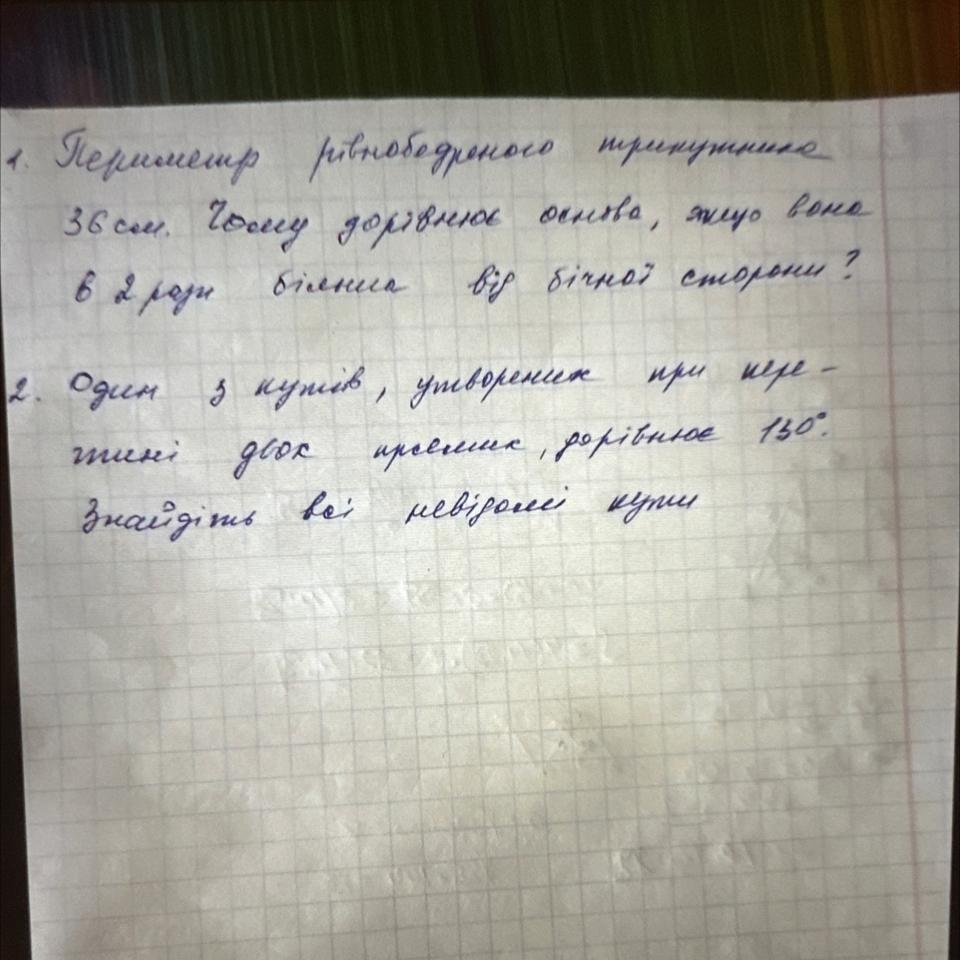 1. Периметр рівнобедреного трикутника
36 см. Чому дорівнює основа, якщо вона
в 2 рази більша від бічної сторони?
2. Один з кутів, утворених при пере-
тині двох прямих, дорівнює 130°.
Знайдіть всі невідомі кути